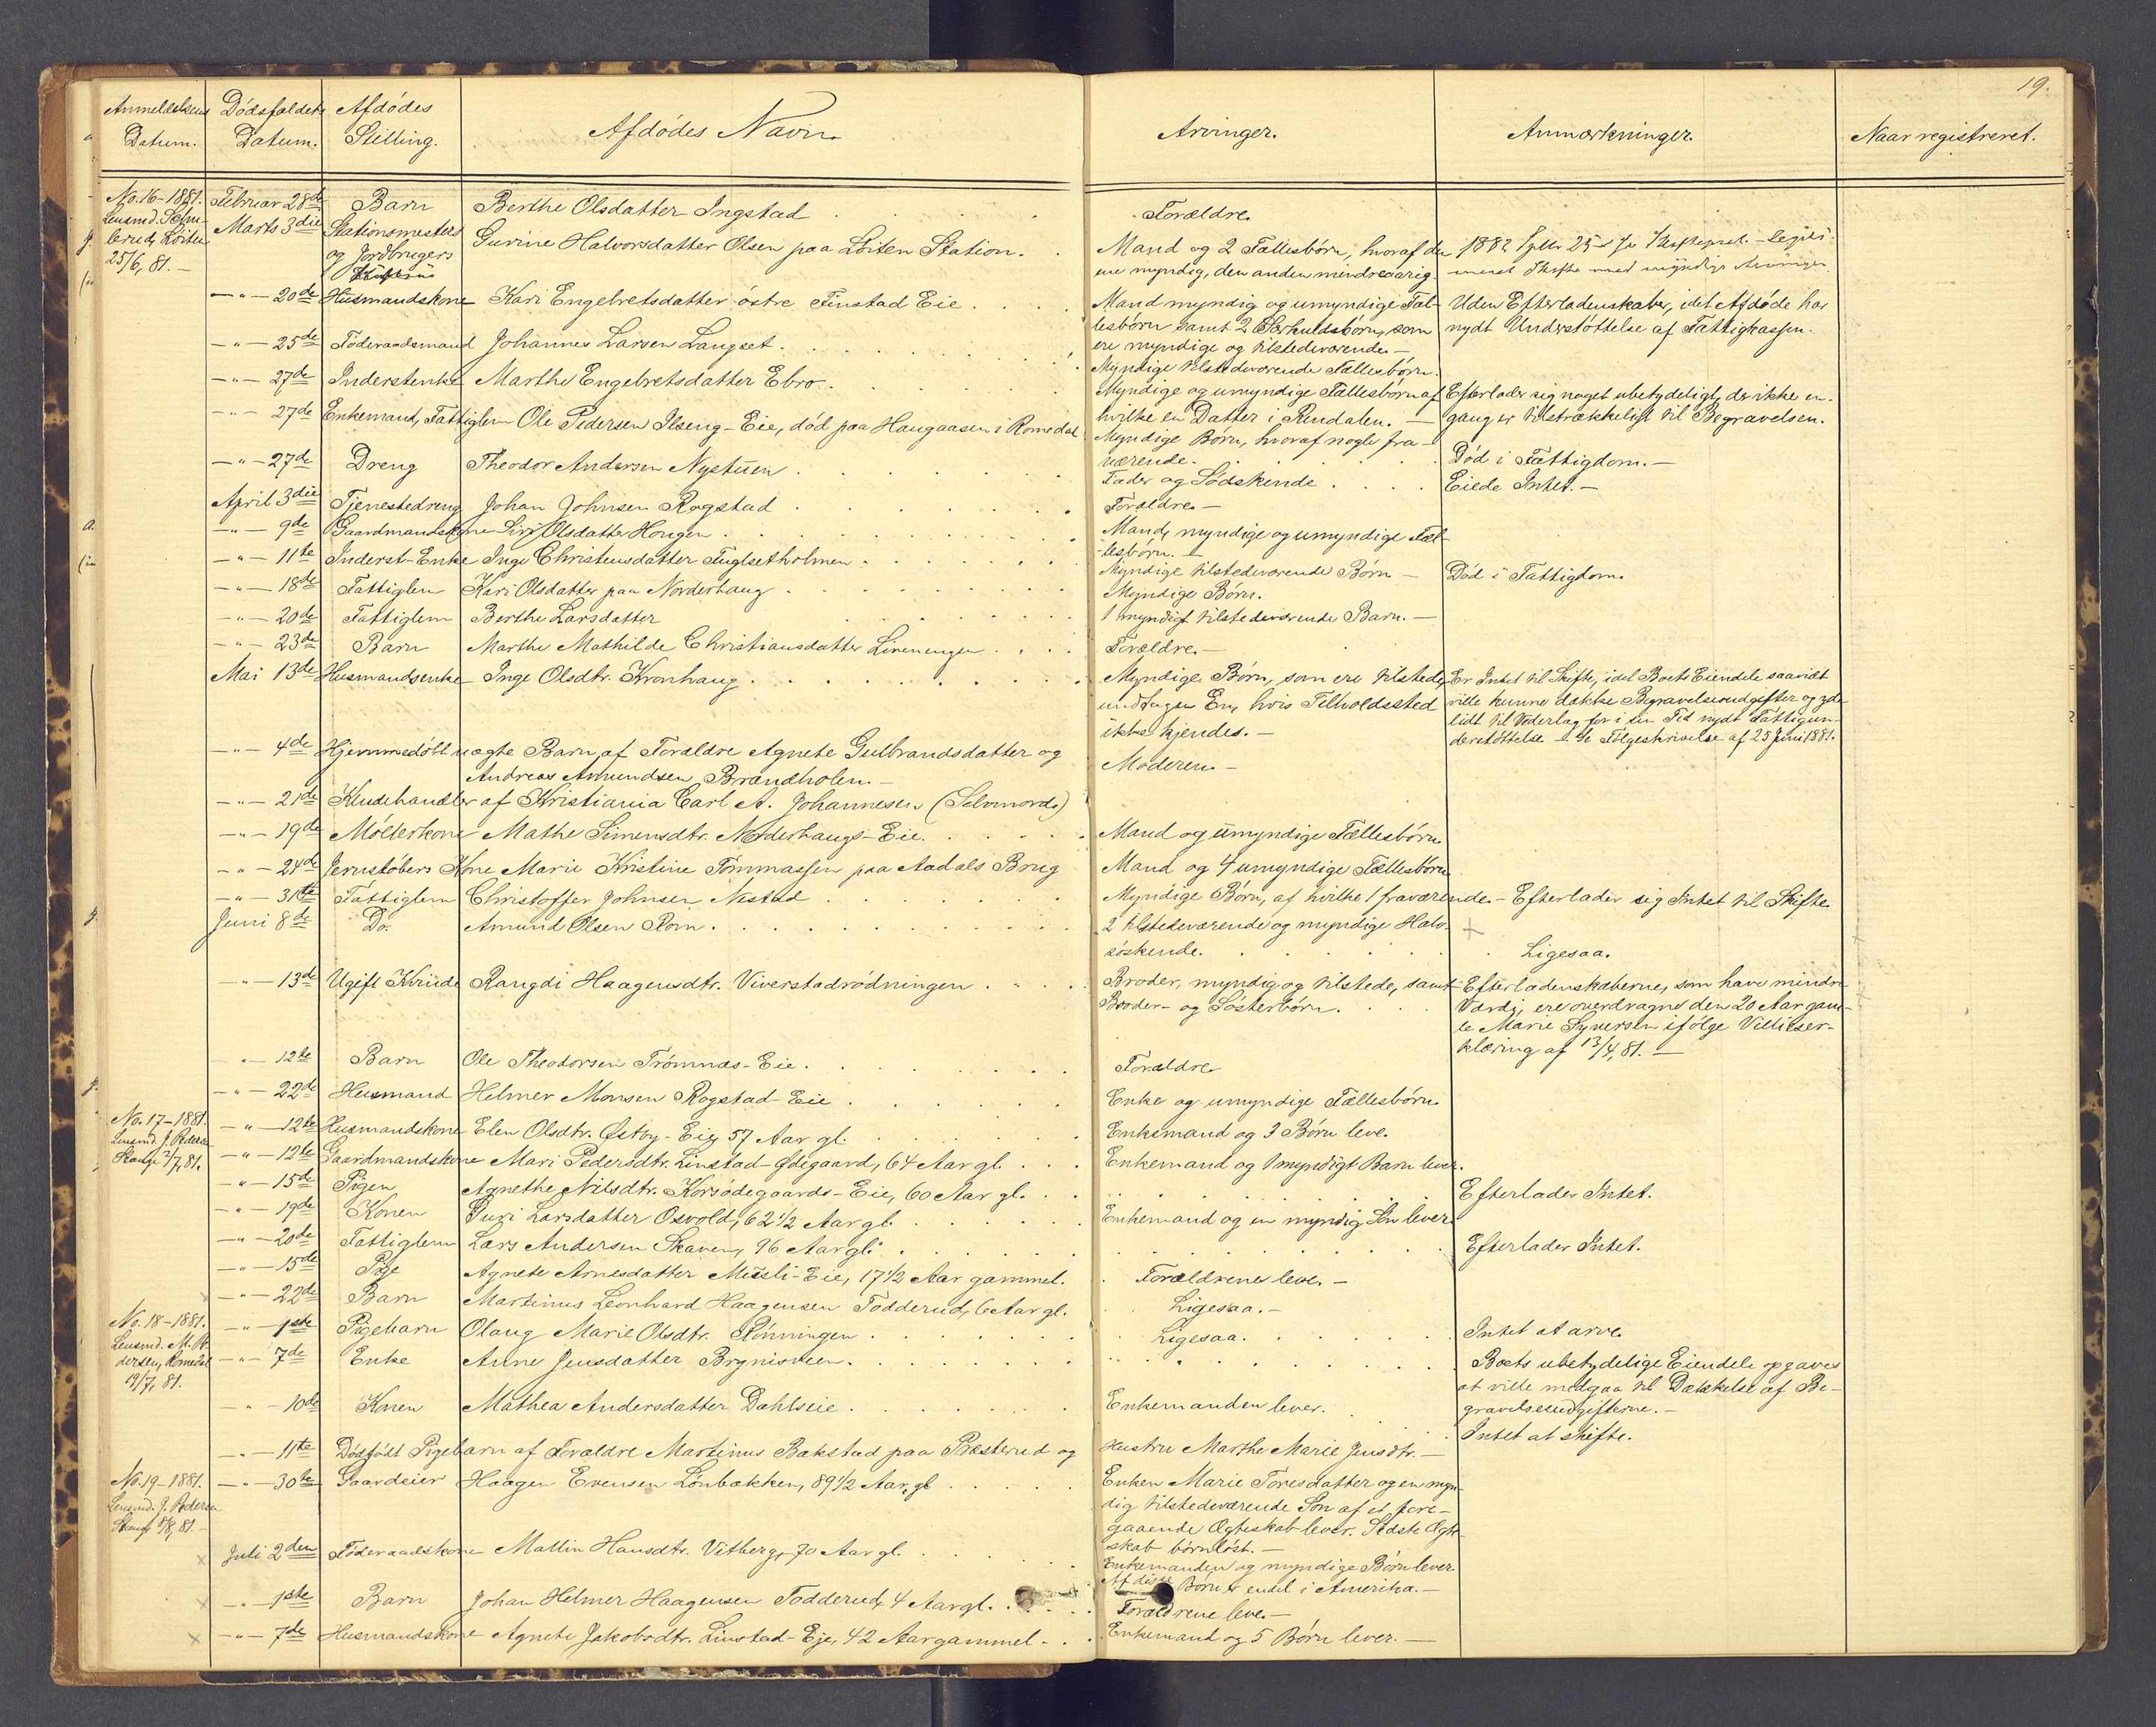 19.
Anmeldelsens Datum.
Dödsfaldets Datum.
Afdödes Stilling.
Afdödes Navn.
Arvinger.
Anmærkninger.
Naar registreret.
No. 16-1881. Februar 28de Barn Berthe Olsdatter Ingstad Forældre.
Lensmd. Löiten 25/6, 81.-
Marts 3die Stationsmesters og Jordbrugers Gurine Halvorsdatter Olsen paa Löiten Station. Mand og 2 Fællesbörn, hvoraf den 1882
ene myndig, den anden mindreaarig Skifte med myndige Arvinger
-"- 20de Husmandskone Kari Engebretsdatter östre Finstad Eie. Mand myndig og umyndige Fæl- Uden Efterladenskaber, idet Afdøde har
lesbörn samt 2 Særkuldsbörn, som nydt Understöttelse af Fattigkassen.
ere myndige og tilstedeværende.-
-"- 25de Föderaadsmand Johannes Larsen Langset. Myndige tilstedeværende Fællesbörn.
-"- 27de Inderstenke Marthe Engebretsdatter Ebro. Myndige og umyndige Fællesbörn af Efterlader sig noget ubetydeligt, der ikke en-
hvilke en Datter i Rendalen.- gang er tilstrækkeligt til Begravelsen.
-"- 27de Enkemand, Fattiglem Ole Pedersen Ilseng-Eie, död paa Haugaasen i Romedal Myndige Börn, hvoraf nogle fra-
værende. Död i Fattigdom.-
-"- 27de Dreng Theodor Andersen Nystuen. Fader og Södskende. Eiede Intet.-
April 3die Tjenestedreng Johan Johnsen Rogstad Forældre.-
-"- 9de Gaardmandskone Siri Olsdatter Hougen. Mand, myndige og umyndige Fæl-
lesbörn.-
-"- 11te Inderst-Enke Inge Christensdatter Fuglsetholmen. Myndige tilstedeværende Börn- Död i Fattigdom.
-"- 18de Fattiglem Kari Olsdatter paa Norderhaug Myndige Börn.
-"- 20de Fattiglem Berthe Larsdatter 1 myndigt tilstedeværende Barn.-
-"- 23de Barn Marthe Mathilde Christiansdatter Forældre.-
Mai 13de Husmandsenke Inge Olsdtr. Kronhaug. Myndige Börn, som ere tilstede, Er Intet til Skifte, idet Boets Eiendele saavidt
undtagen En, hvis Tilholdssted ville kunne dække Begravelsesudgifter og
ikke kjendes.- lidt til Vederlag for i sin Tid nydt Fattigun-
derstöttelse - Følgeskrivelse af 25 Juni 1881.
-"- 4de Hjemmedöbt uægte Barn af Forældre Agnete Gulbrandsdatter og
Andreas Amundsen, Brændholen.- Moderen.-
-"- 21de Kludehandler af Kristiania Carl A. Johannesen (Selvmord.)
-"- 19de Möllerkone Mathe Simensdtr. Norderhaugs-Eie. Mand og umyndige Fællesbörn
-"- 24de Jernstöbers Kone Marie Kristine Tömmassen paa Aadals Brug Mand og 4 umyndige Fællesbörn
-"- 31te Fattiglem Christoffer Johnsen Nestad Myndige Börn, af hvilke 1 fraværende.- Efterlader sig Intet til Skifte
Juni 8de Do. Amund Olsen Rom. 2 tilstedeværende og myndige Halv-
söskende. Ligesaa.
-"- 13de Ugift Kvinde Rangdi Haagensdtr. Viverstadrödningen Broder, myndig og tilstede, samt Efterladenskaberne, som have mindre
Broder- og Sösterbörn. Værdi, ere overdragne den 20 Aar gam-
le Marie Syversen ifölge Villieser-
klæring af 13/4, 81.-
-"- 12te Barn Ole Theodorsen Trömnæs-Eie. Forældre
-"- 22de Husmand Helmer Monsen Rogstad-Eie Enke og umyndige Fællesbörn.
No. 17-1881. Lensmd. J. Pedersen Stange 2/7, 81.
-"- 12te Husmandskone Elen Olsdtr. Østby-Eie, 57 Aar gl. Enkemand og 3 Börn leve.
-"- 12te Gaardmandskone Mari Pedersdtr. Linstad-Ødegaard, 64 Aar gl. Enkemand og 1 myndigt Barn lever.
-"- 15de Pigen Agnethe Nilsdtr. Korsödegaards-Eie, 60 Aar gl. Efterlader Intet.
-"- 19de Konen Guri Larsdatter Osvold, 62 1/2 Aar gl. Enkemand og en myndig Sön lever
-"- 20de Fattiglem Lars Andersen Skaven, 96 Aar gl. Efterlader Intet.
-"- 15de Pige Agnete Arnesdatter Musli-Eie, 17 1/2 Aar gammel. Forældrene leve.-
-"- 22de Barn Martinus Leonhard Haagensen Todderud, 6 Aar gl. Ligesaa.-
No. 18-1881. Lensmd. M. Pedersen, Romedal 19/7, 81.
-"- 1ste Pigebarn Olaug Marie Olsdtr. Rönningen Ligesaa. Intet at arve.
-"- 7de Enke Anne Jensdatter Brynisveen. Boets ubetydelige Eiendele opgaves
at ville medgaa til Dækkelse af Be-
gravelsesudgifterne.-
-"- 10de Konen Mathea Andersdatter Dahlseie. Enkemanden lever. Intet at skifte.
-"- 11te Dödfödt Pigebarn af Forældre Martinus Bakstad paa Præsterud og Hustru Marthe Marie Jensdtr.-
No. 19-1881. Lensmd. J. Pedersen Stange 5/8, 81.-
-"- 30te Gaardeier Haagen Evensen Lönbakken, 89 1/2 Aar gl. Enken Marie Toresdatter og en myn-
dig tilstedeværende Sön af et fore-
gaaende Ægteskab lever. Sidste Ægte-
skab börnlöst.-
Juli 2den Föderaadskone Mallin Hansdtr. Vitberg, 70 Aar gl. Enkemanden og myndige Börn lever.
Af disse Börn er endel i Amerika.-
-"- 1ste Barn Johan Helmer Haagensen Todderud, 4 Aar gl. Forældrene leve.-
-"- 7de Husmandskone Agnete Jakobsdtr. Linstad-Eje, 42 Aar gammel. Enkemand og 5 Börn lever.-